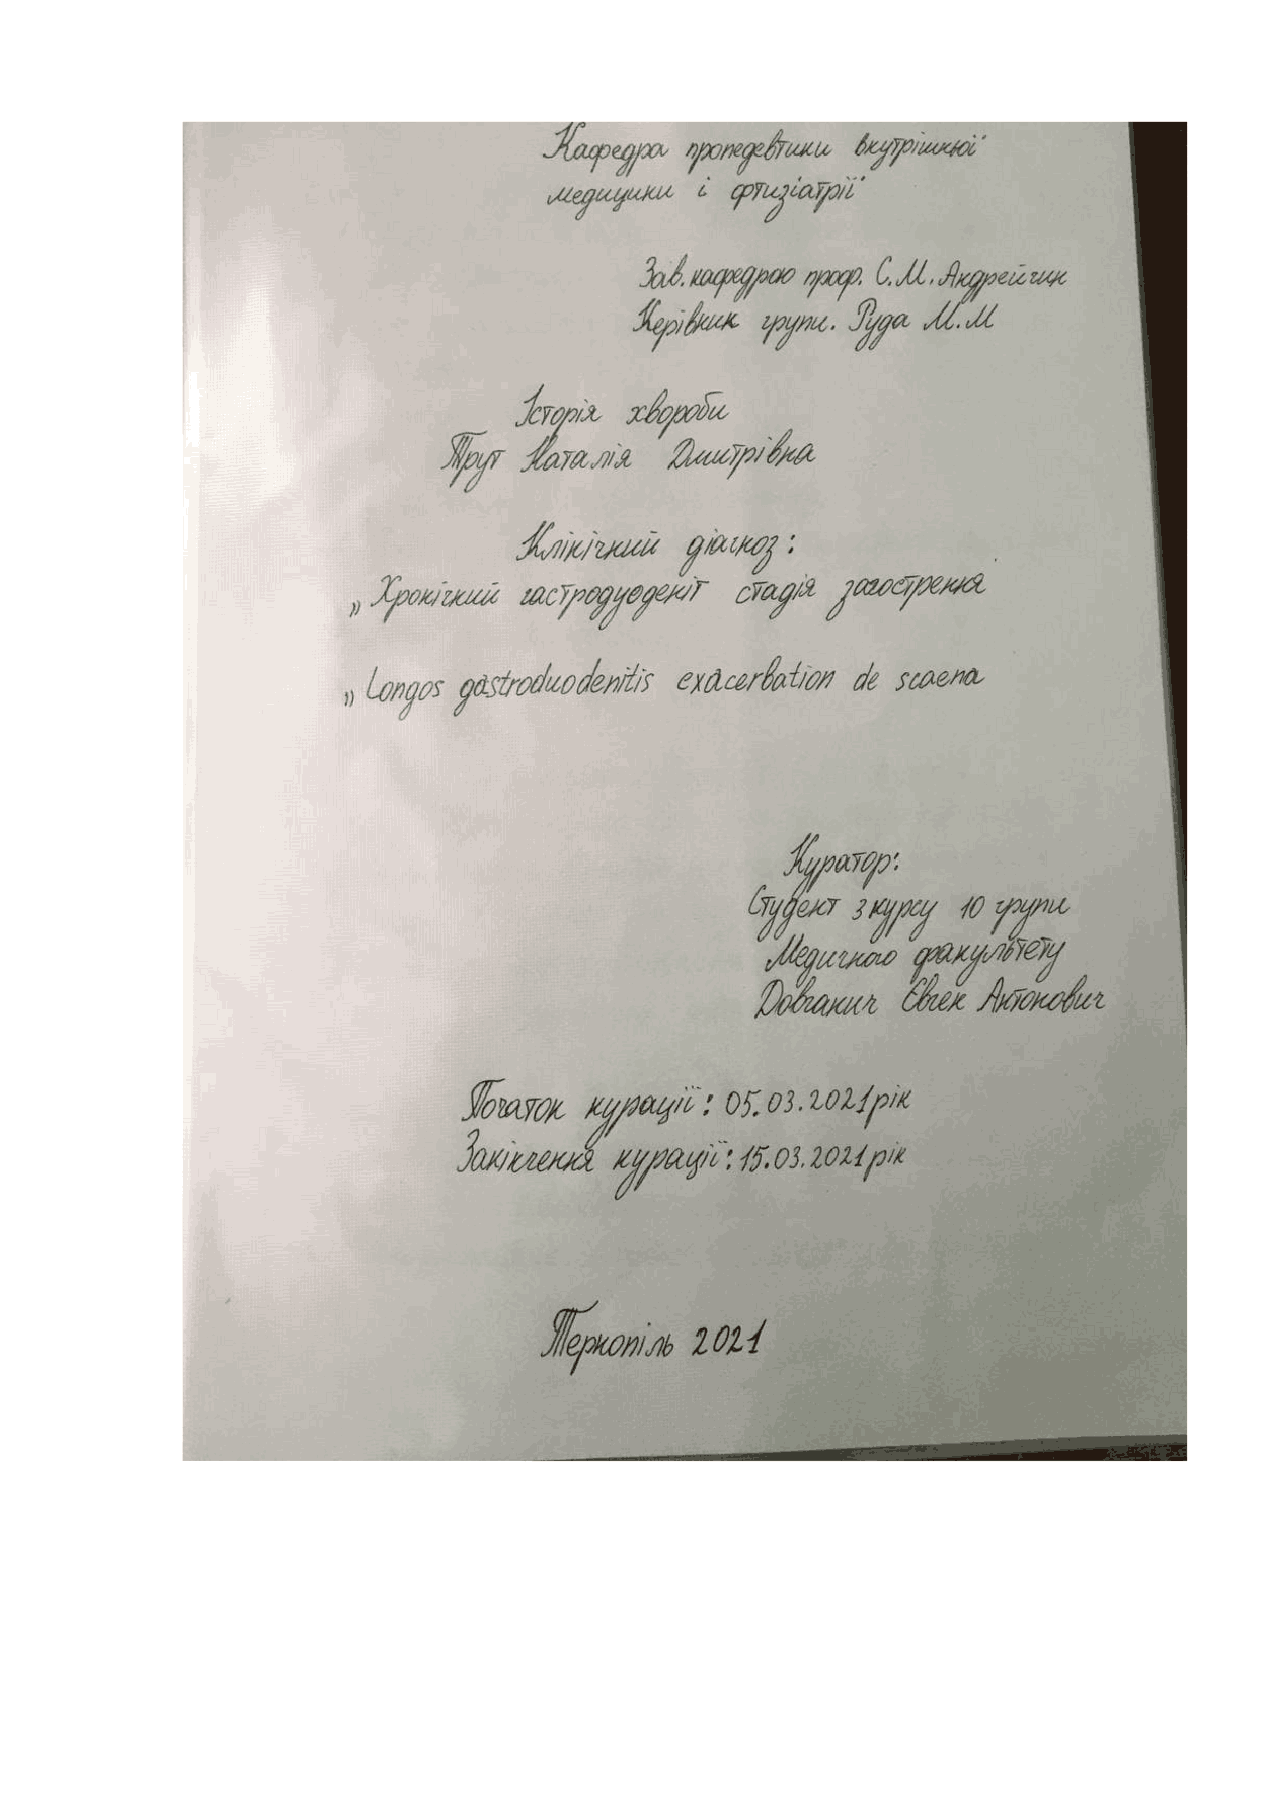 Кафедра пропедевтики внутрішньої
медицини і фтизіатрії
Зав. кафедрою проф. С.М. Андрейчин
Керівник групи. Руда М.М
Історія хвороби
Трут Наталія Дмитрівна
Клінічний діагноз:
„ Хронічний гастродуоденіт стадія загострення
„ Longos gastroduodenitis exacerbation de scaena
Куратор:
Студент 3 курсу 10 групи
Медичного факультету
Довганич Євген Антонович
Початок курації: 05.03.2021 рік
Закінчення курації: 15.03.2021 рік
Тернопіль 2021